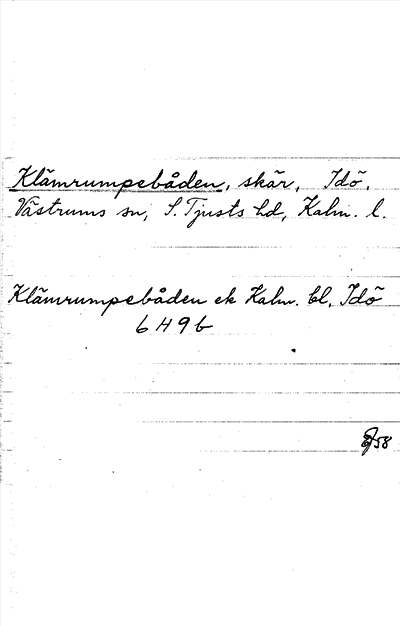 Klämrumpebåden, skär, Idö,
Västrums sn, S. Tjusts hd, Kalm. l.
Klämrumpebåden ek Kalm. bl, Idö
6 H 9 b
58